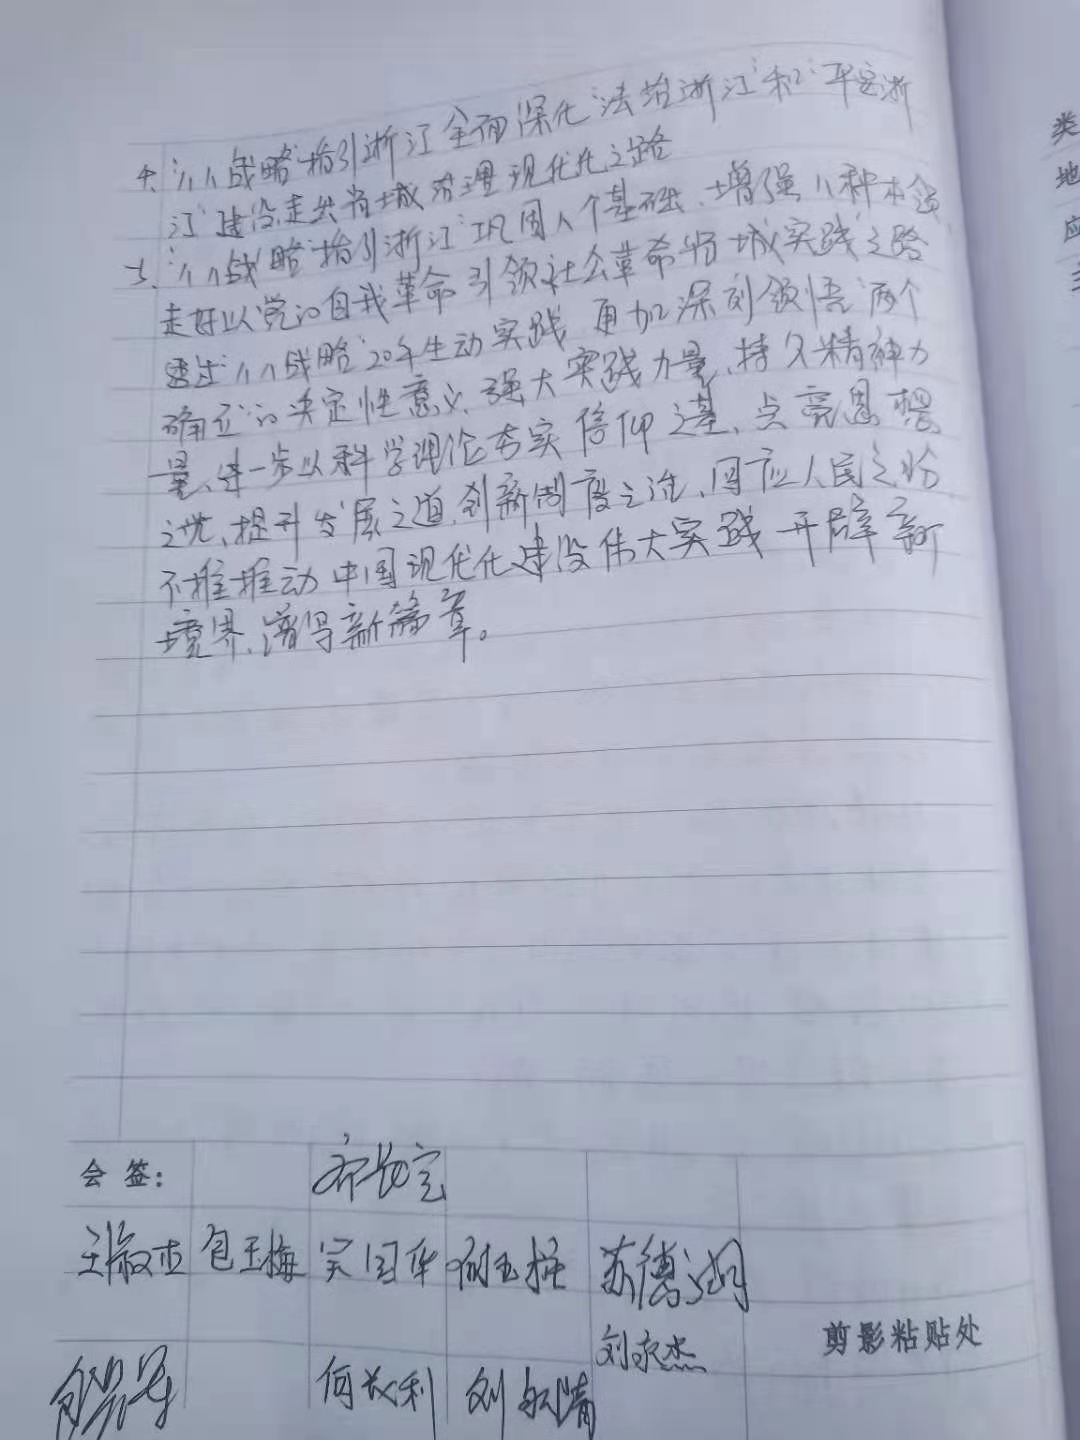 4、"八八战略"指引浙江全面深化"法治浙江"和"平安浙
江"建设走出省域治理现代化之路
5、"八八战略"指引浙江"巩固八个基础、增强八种本领
走好以党的自我革命引领社会革命省域实践之路
透过"八八战略"20年生动实践 更加深刻领悟"两个
确立"的决定性意义、强大实践力量、持久精神力
量、进一步以科学理论夯实信仰之基、点亮思想
之光、提升发展之道、创新制度之治、回应人民之盼
不推推动中国现代化建设伟大实践开辟新
境界、谱写新篇章。
类
地
应
会 签:
包玉梅 吴国华
苏德
刘永杰
剪影粘贴处
何 利 刘